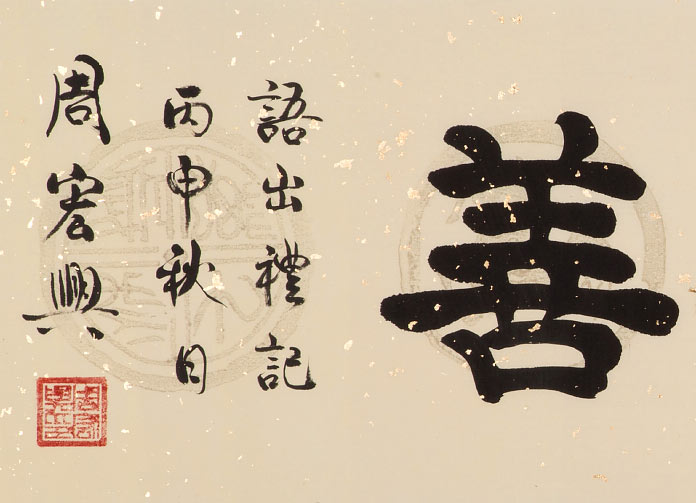 善
語出禮記
丙申秋日
周宏興